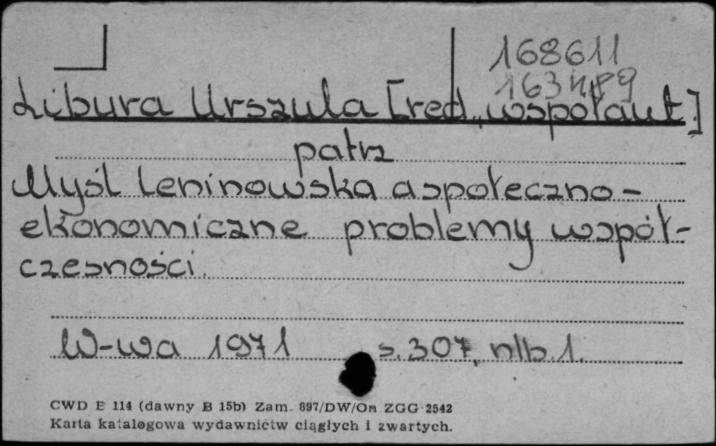 168611
163489
Libura Urszula [red., współaut.]
patrz
Myśl leninowska a społeczno-
ekonomiczne problemy współ-
czesności.
W-wa 1971 s. 307, nlb. 1.
CWD E 114 (dawny B 15b) Zam. 897/DW/On ZGG 2542
Karta katalogowa wydawnictw ciągłych i zwartych.